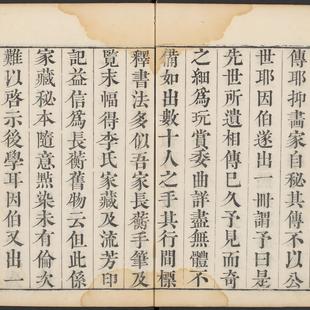 傳耶抑畫家自秘其傳不以公
世耶因伯遂出一冊謂予曰是
先世所遺相傳已久予見而奇
之細為玩賞委曲詳盡無體不
備如出數十人之手其行間標
釋書法多似吾家長蘅手筆及
覽末幅得李氏家藏及流芳印
記益信為長蘅舊物云但此係
家藏秘本隨意㸃染未有倫次
難以啓示後學耳因伯又出一